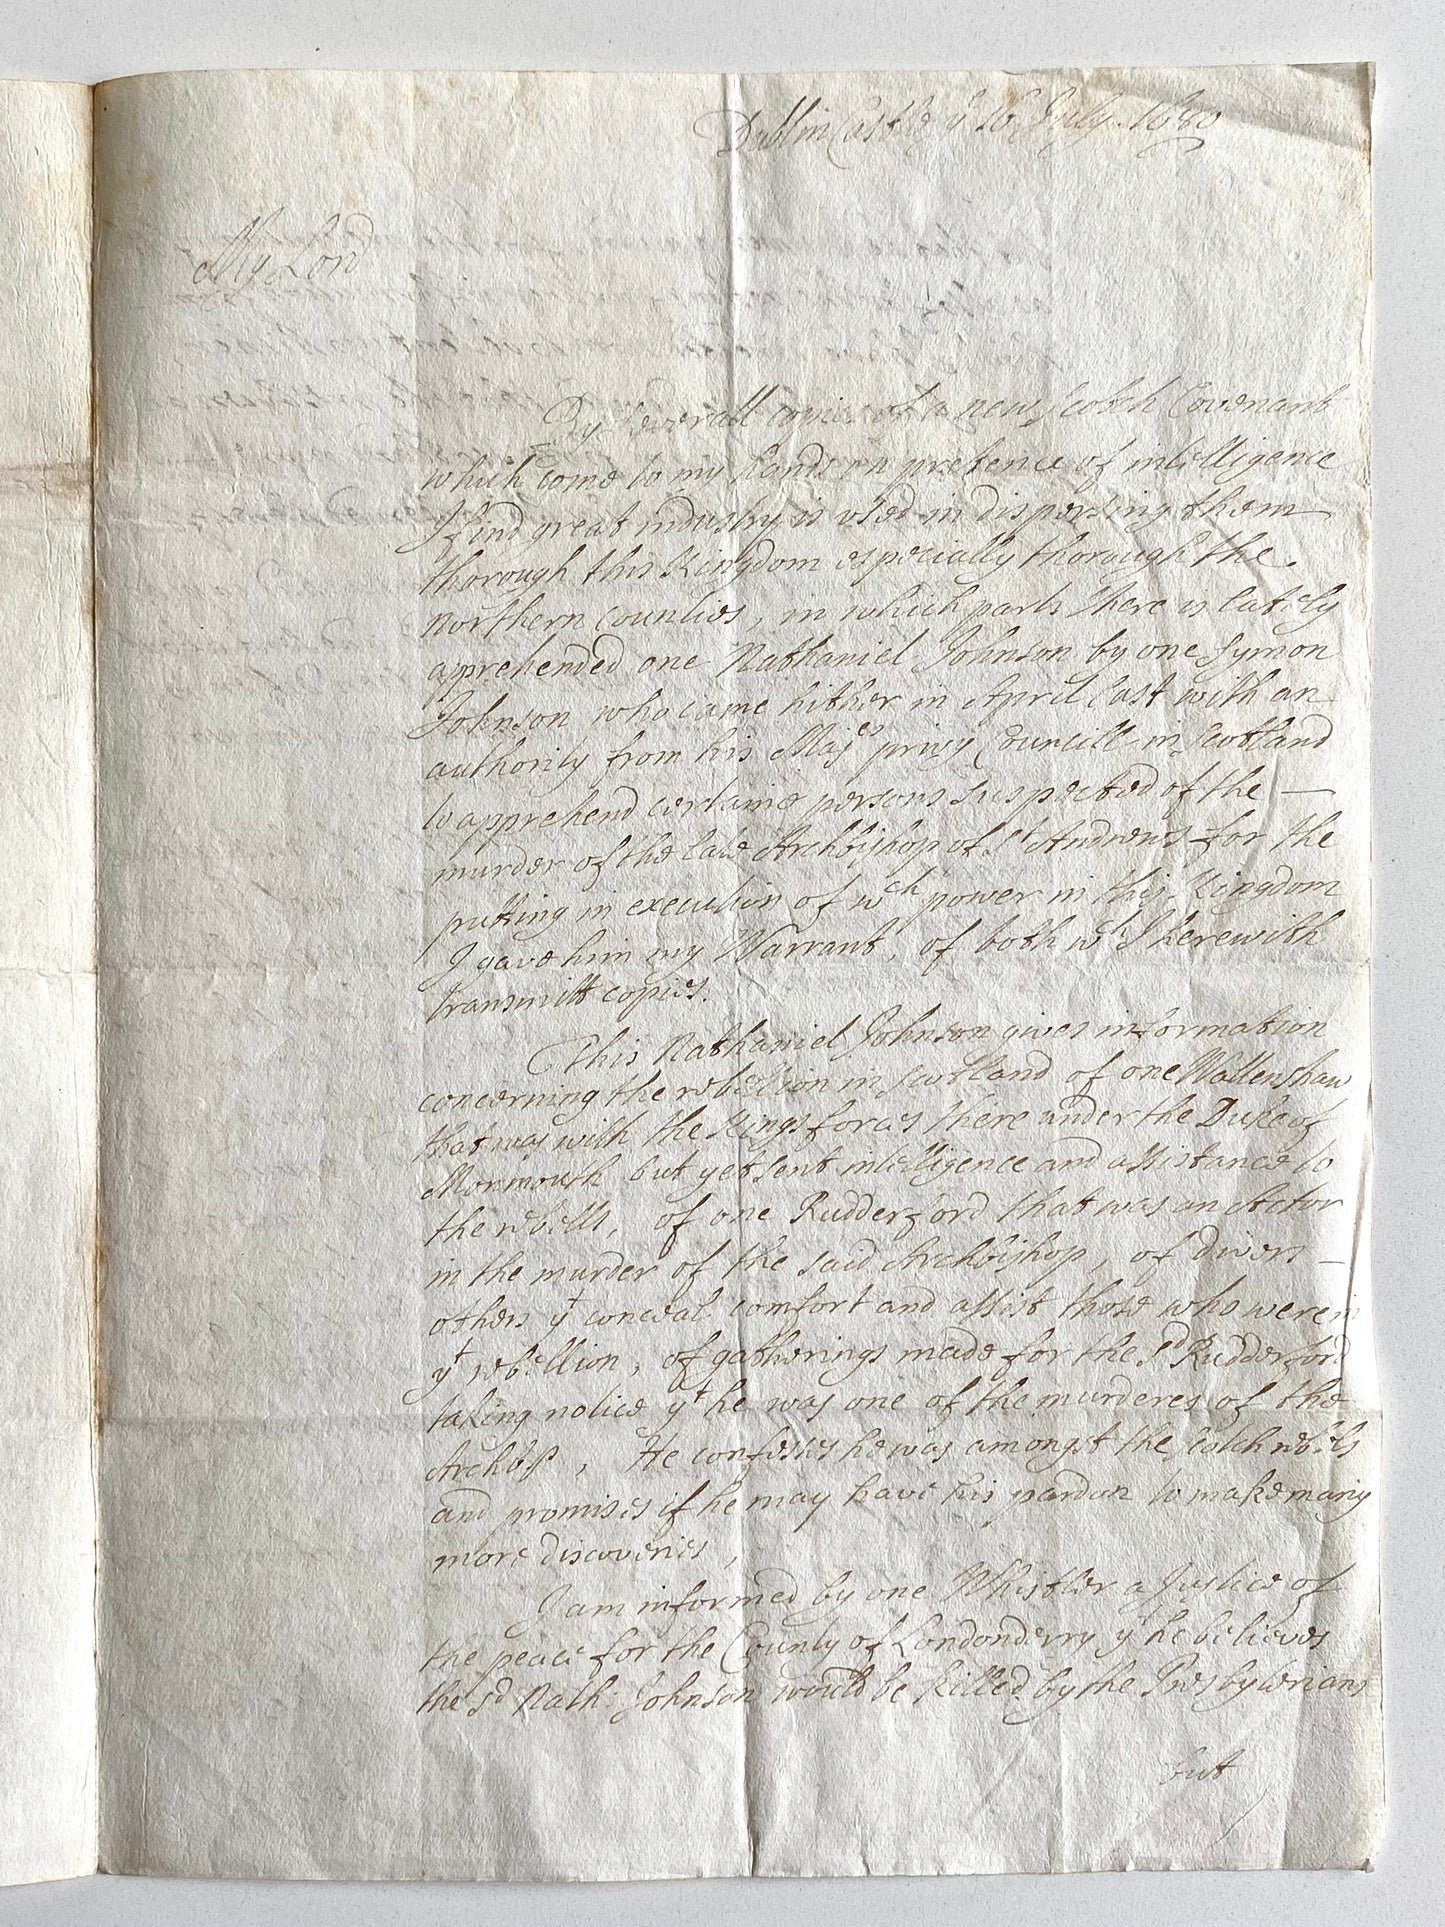 Dublin Castle yᵉ 16 July. 1680
My Lord
By severall copies of a new Scotch Covenant
which come to my hands on pretence of intelligence
I find great industry is used in dispersing them
thorough this Kingdom especially thorough the
northern counties, in which parts there is lately
apprehended one Nathaniel Johnson by one Symon
Johnson who came hither in April last with an
authority from his Majᵉˢ privy Councill in Scotland
to apprehend certaine persons suspected of the —
murder of the late Archbishop of Sᵗ Andrews for the
putting in execution of wᶜʰ power in this Kingdom
I gave him my Warrant, of both wᶜʰ I herewith
transmitt copies.
This Nathaniel Johnson gives information
concerning the rebellion in Scotland of one Wallenshaw
that was with the Kings forces there under the Duke of
Monmouth but yet sent intelligence and assistance to
the rebells, of one Rudderford that was an Actor
in the murder of the said Archbishop, of divers —
others yᵗ conceal comfort and assist those who were in
yᵗ rebellion, of gatherings made for the sᵈ Rudderford
taking notice yᵗ he was one of the murderers of the
Archbᵖ, He confesses he was amongst the Scotch rebells
and promises if he may have his pardon to make many
more discoveries,
I am informed by one Whistler a Justice of
the peace for the County of Londonderry yᵗ he believes
the sᵈ Nath: Johnson would be killed by the Presbyterians
but